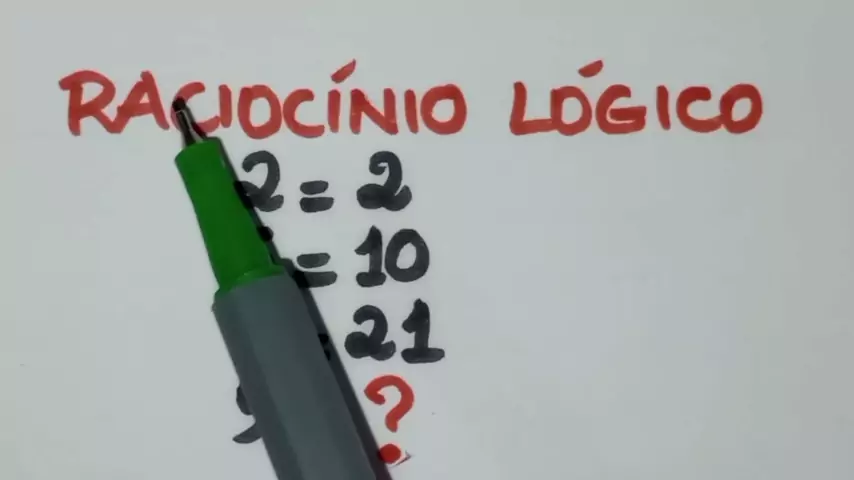 RACIOCÍNIO LÓGICO
2 = 2
= 10
21
?